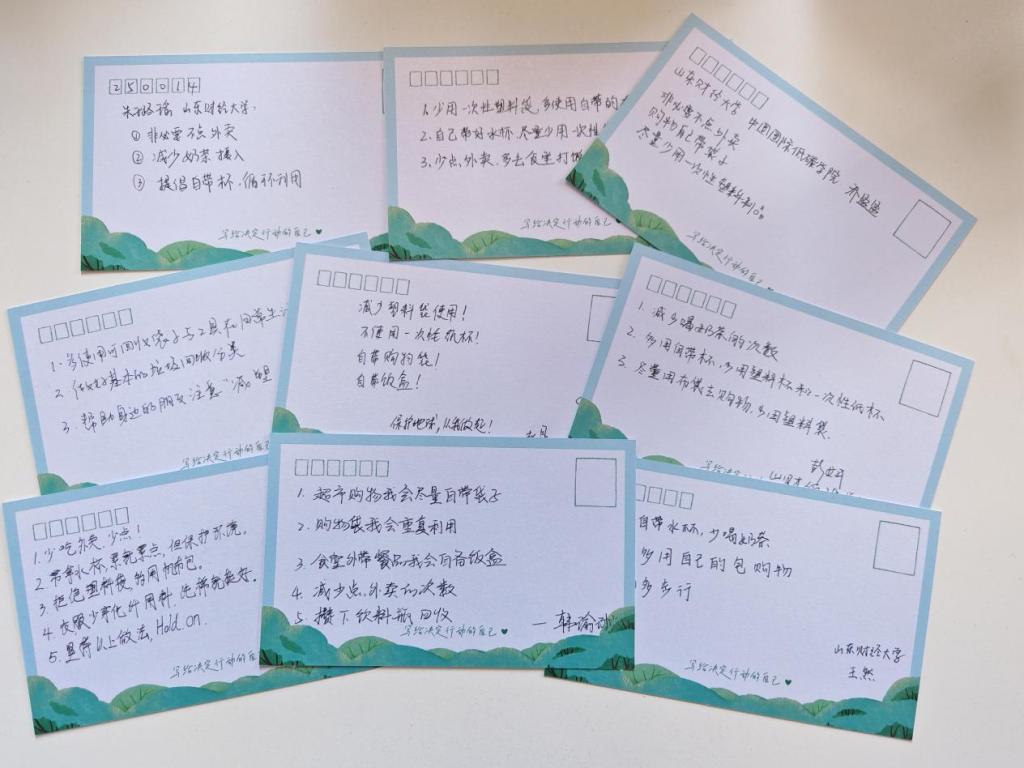 250014
山东财经大学:
① 非必要不点外卖
② 减少奶茶摄入
③ 提倡自带杯、循环利用
写给决定行动的自己
1. 少用一次性塑料袋,多使用自带的
2. 自己带好水杯,尽量少用一次性
3. 少点外卖,多去食堂打饭
写给决定行动的自己
山东财经大学 中国国际低碳学院
非必要不点外卖
购物自己带袋子
尽量少用一次性塑料制品
写给决定行动的自己
1. 多使用可回收
2. 做好基本的垃圾回收分类
3. 帮助身边的朋友注意“减塑
写给决定行动的自己
减少塑料袋使用!
不使用一次性纸杯!
自带购物袋!
自带饭盒!
保护地球,从我做起!
1. 减少喝奶茶的次数
2. 多用自带杯,少用塑料杯和一次性纸杯
3. 尽量用布袋去购物,少用塑料袋.
1. 少吃外卖,少点!
2. 常拿水杯,累就累点,但保护环境。
3. 拒绝塑料袋,多用帆布包。
4. 衣服少穿化纤用料,
5. 坚持以上做法,Hold on.
写给决定行动的自己
1. 超市购物我会尽量自带袋子
2. 购物袋我会重复利用
3. 食堂外带餐品,我会自备饭盒
4. 减少点外卖的次数
5. 攒下饮料瓶回收
写给决定行动的自己
自带水杯,少喝奶茶
多用自己的包购物
多步行
山东财经大学
王然
写给决定行动的自己